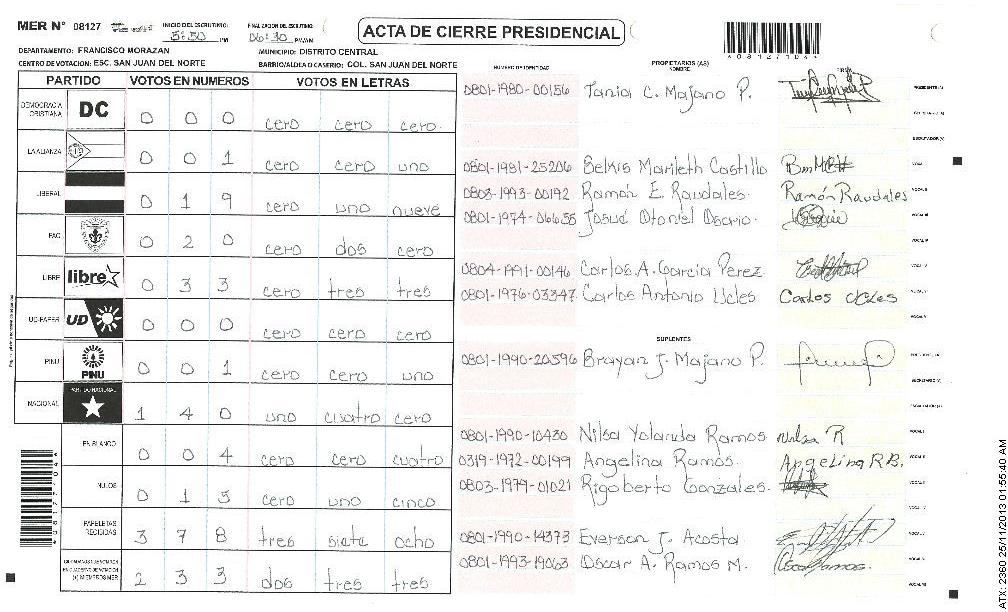 MER Nº 08127 INICIO DEL ESCRUTINIO: 5:50 PM FINALIZACION DEL ESCRUTINIO: 06:30 PM/AM
ACTA DE CIERRE PRESIDENCIAL
*08127104*
DEPARTAMENTO: FRANCISCO MORAZAN MUNICIPIO: DISTRITO CENTRAL
CENTRO DE VOTACION: ESC. SAN JUAN DEL NORTE BARRIO/ALDEA O CASERIO: COL. SAN JUAN DEL NORTE
PARTIDO VOTOS EN NUMEROS VOTOS EN LETRAS
DEMOCRACIA CRISTIANA DC 0 0 0 cero cero cero
LA ALIANZA 0 0 1 cero cero uno
LIBERAL 0 1 9 cero uno nueve
PAC 0 2 0 cero dos cero
LIBRE libre 0 3 3 cero tres tres
UD-FAPER UD 0 0 0 cero cero cero
PINU PINU 0 0 1 cero cero uno
NACIONAL PARTIDO NACIONAL 1 4 0 uno cuatro cero
EN BLANCO 0 0 4 cero cero cuatro
NULOS 0 1 5 cero uno cinco
PAPELETAS RECIBIDAS 3 7 8 tres siete ocho
2 3 3 dos tres tres
NUMERO DE IDENTIDAD PROPIETARIOS (AS) NOMBRE FIRMA
0801-1980-00156 Tania C. Majano P. PRESIDENTE (A)
SECRETARIO (A)
ESCRUTADOR (A)
0801-1981-25206 Belkis Marileth Castillo VOCAL I
0803-1993-00192 Ramón E. Raudales. Ramón Raudales VOCAL II
0801-1974-06655 Josué Otoniel Osorio. VOCAL III
VOCAL IV
0804-1991-00146 Carlos A. Garcia Perez VOCAL V
0801-1976-03347 Carlos Antonio Ucles Carlos Ucles VOCAL VI
SUPLENTES
0801-1990-20596 Brayan J. Majano P. PRESIDENTE (A)
SECRETARIO (A)
ESCRUTADOR (A)
0801-1990-10430 Nilsa Yolanda Ramos Nilsa R VOCAL I
0319-1972-00199 Angelina Ramos. Angelina R B. VOCAL II
0803-1979-01021 Rigoberto Gonzales. VOCAL III
VOCAL IV
0801-1990-14373 Everson J. Acosta VOCAL V
0801-1993-19063 Oscar A. Ramos M. VOCAL VI
ATX: 2360 25/11/2013 01:55:40 AM